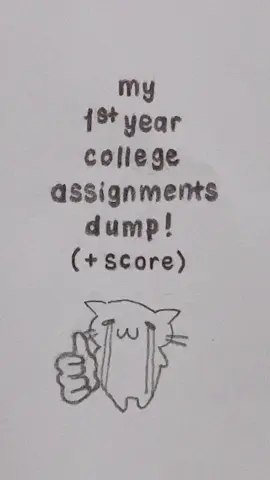 my
1st year
college
assignments
dump!
(+ score)